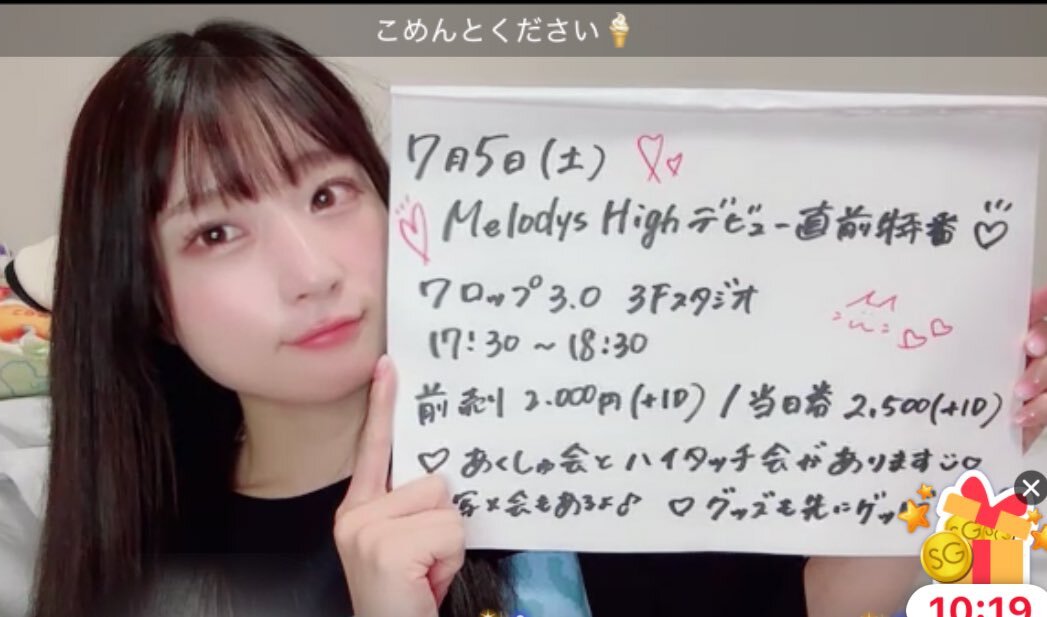 こめんとください🍦
7月5日(土)
Melodys High デビュー直前特番
フロップ3.0 3Fスタジオ
17:30～18:30
前売り 2.000円(+1D) / 当日券 2,500(+1D)
♡ あくしゅ会とハイタッチ会があります
写メ会もあるよ♪ ♡ グッズも先にゲッ
SG
10:19